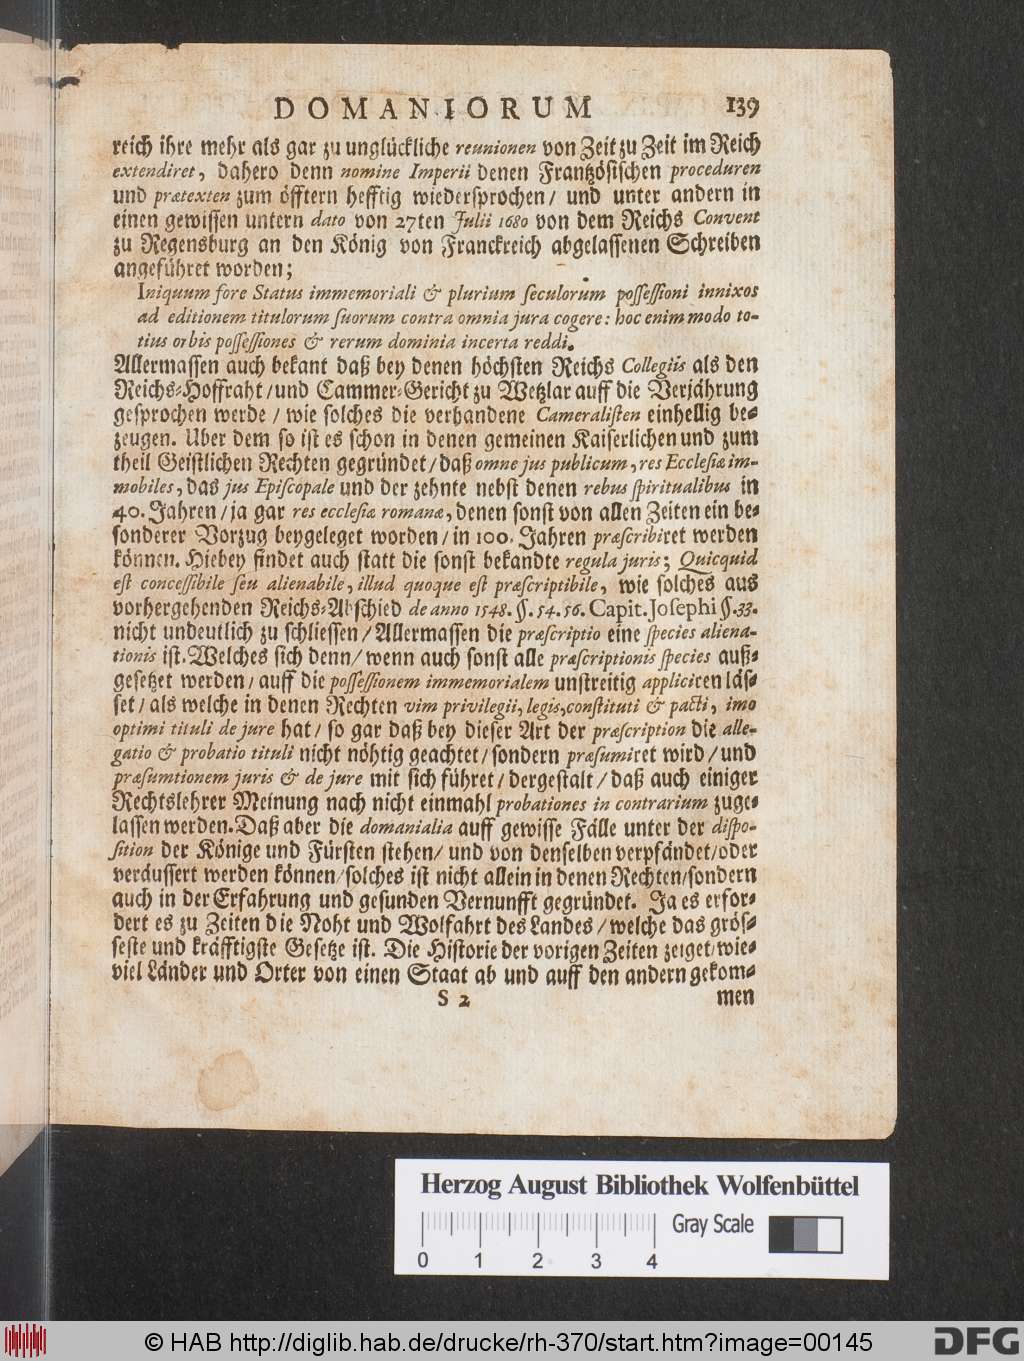 DOMANIORUM 139
reich ihre mehr als gar zu unglückliche reunionen von Zeit zu Zeit im Reich
extendiret, dahero denn nomine Imperii denen Frantzösischen proceduren
und prætexten zum öfftern hefftig wiedersprochen / und unter andern in
einen gewissen untern dato von 27ten Julii 1680 von dem Reichs Convent
zu Regensburg an den König von Franckreich abgelassenen Schreiben
angeführet worden;
Iniquum fore Status immemoriali & plurium seculorum possessioni innixos
ad editionem titulorum suorum contra omnia jura cogere: hoc enim modo to-
tius orbis possessiones & rerum dominia incerta reddi.
Allermassen auch bekant daß bey denen höchsten Reichs Collegiis als den
Reichs-Hoffraht / und Cammer-Gericht zu Wetzlar auff die Verjährung
gesprochen werde / wie solches die verhandene Cameralisten einhellig be-
zeugen. Uber dem so ist es schon in denen gemeinen Kaiserlichen und zum
theil Geistlichen Rechten gegründet / daß omne jus publicum, res Ecclesiæ im-
mobiles, das jus Episcopale und der zehnte nebst denen rebus spiritualibus in
40. Jahren / ja gar res ecclesiæ romanæ, denen sonst von allen Zeiten ein be-
sonderer Vorzug beygeleget worden / in 100. Jahren præscribiret werden
können. Hiebey findet auch statt die sonst bekandte regula juris; Quicquid
est concessibile seu alienabile, illud quoque est præscriptibile, wie solches aus
vorhergehenden Reichs-Abschied de anno 1548. §. 54. 56. Capit. Josephi §. 33.
nicht undeutlich zu schliessen / Allermassen die præscriptio eine species aliena-
tionis ist. Welches sich denn / wenn auch sonst alle præscriptionis species auß-
gesetzet werden / auff die possessionem immemorialem unstreitig appliciren läs-
set / als welche in denen Rechten vim privilegii, legis, constituti & pacti, imo
optimi tituli de jure hat / so gar daß bey dieser Art der præscription die alle-
gatio & probatio tituli nicht nöhtig geachtet / sondern præsumiret wird / und
præsumtionem juris & de jure mit sich führet / dergestalt / daß auch einiger
Rechtslehrer Meinung nach nicht einmahl probationes in contrarium zuge-
lassen werden. Daß aber die domanialia auff gewisse Fälle unter der dispo-
sition der Könige und Fürsten stehen / und von denselben verpfändet / oder
veräussert werden können / solches ist nicht allein in denen Rechten / sondern
auch in der Erfahrung und gesunden Vernunfft gegründet. Ja es erfor-
dert es zu Zeiten die Noht und Wolfahrt des Landes / welche das grös-
seste und kräfftigste Gesetze ist. Die Historie der vorigen Zeiten zeiget / wie-
viel Länder und Orter von einen Staat ab und auff den andern gekom-
S 2 men
Herzog August Bibliothek Wolfenbüttel
Gray Scale
0 1 2 3 4
© HAB http://diglib.hab.de/drucke/rh-370/start.htm?image=00145
DFG